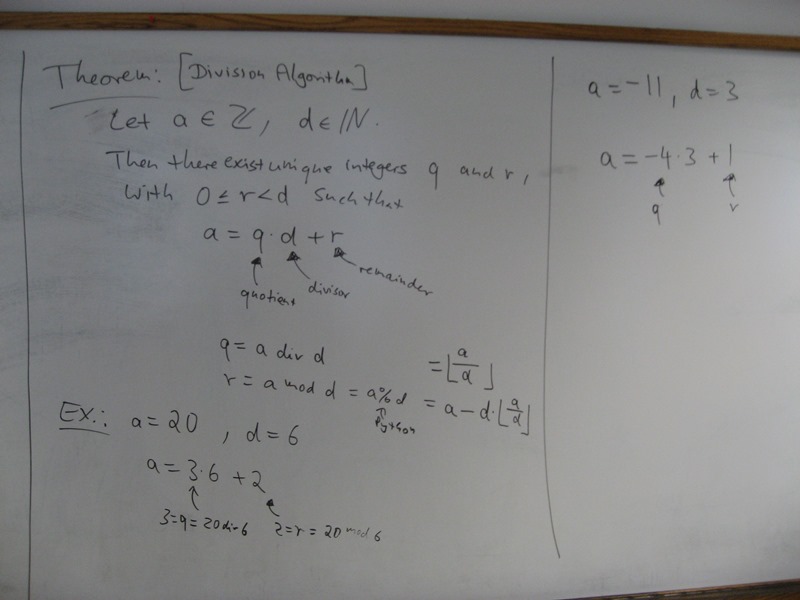 Theorem: [Division Algorithm]
Let a ∈ ℤ, d ∈ ℕ.
Then there exist unique integers q and r,
with 0 ≤ r < d such that
a = q · d + r
quotient divisor remainder
q = a div d = ⌊a/d⌋
r = a mod d = a % d = a − d·⌊a/d⌋
Python
Ex.: a = 20 , d = 6
a = 3·6 + 2
3=q=20 div 6 2=r=20 mod 6
a = −11, d = 3
a = −4 · 3 + 1
q r